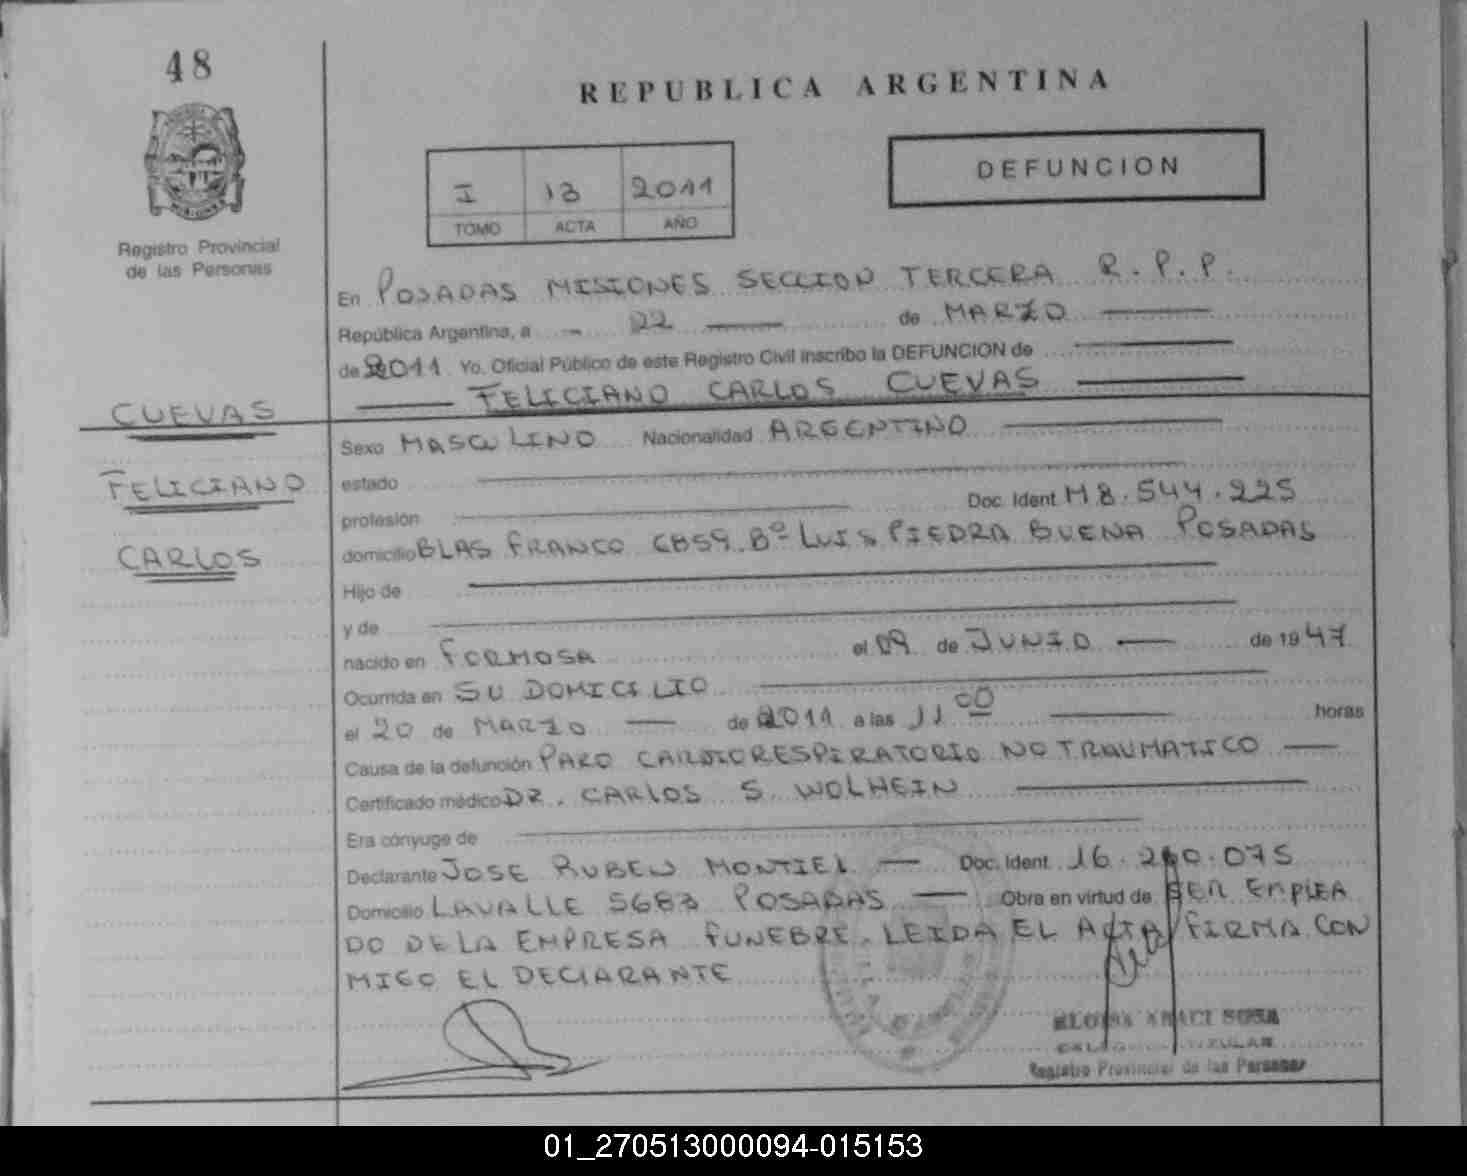 48
REPUBLICA ARGENTINA
I 13 2011
TOMO ACTA AÑO
DEFUNCION
Registro Provincial
de las Personas
En POSADAS MISIONES SECCION TERCERA R.P.P.
República Argentina, a 22 de MARZO
de 2011 Yo, Oficial Público de este Registro Civil inscribo la DEFUNCION de
FELICIANO CARLOS CUEVAS
CUEVAS
FELICIANO
CARLOS
Sexo MASCULINO Nacionalidad ARGENTINO
estado
profesión Doc. Ident M 8.544.225
domicilio BLAS FRANCO 6859 Bº LUIS PIEDRA BUENA POSADAS
Hijo de
y de
nacido en FORMOSA el 09 de JUNIO de 1947
Ocurrida en SU DOMICILIO
el 20 de MARZO de 2011 a las 11 00 horas
Causa de la defunción PARO CARDIORESPIRATORIO NO TRAUMATICO
Certificado médico DR. CARLOS S. WOLHEIN
Era cónyuge de
Declarante JOSE RUBEN MONTIEL Doc. Ident. 16.2 0.075
Domicilio LAVALLE 5683 POSADAS Obra en virtud de SER EMPLEA
DO DE LA EMPRESA FUNEBRE. LEIDA EL ACTA FIRMA CON
MIGO EL DECLARANTE
SOSA
Registro Provincial de las Personas
01_270513000094-015153